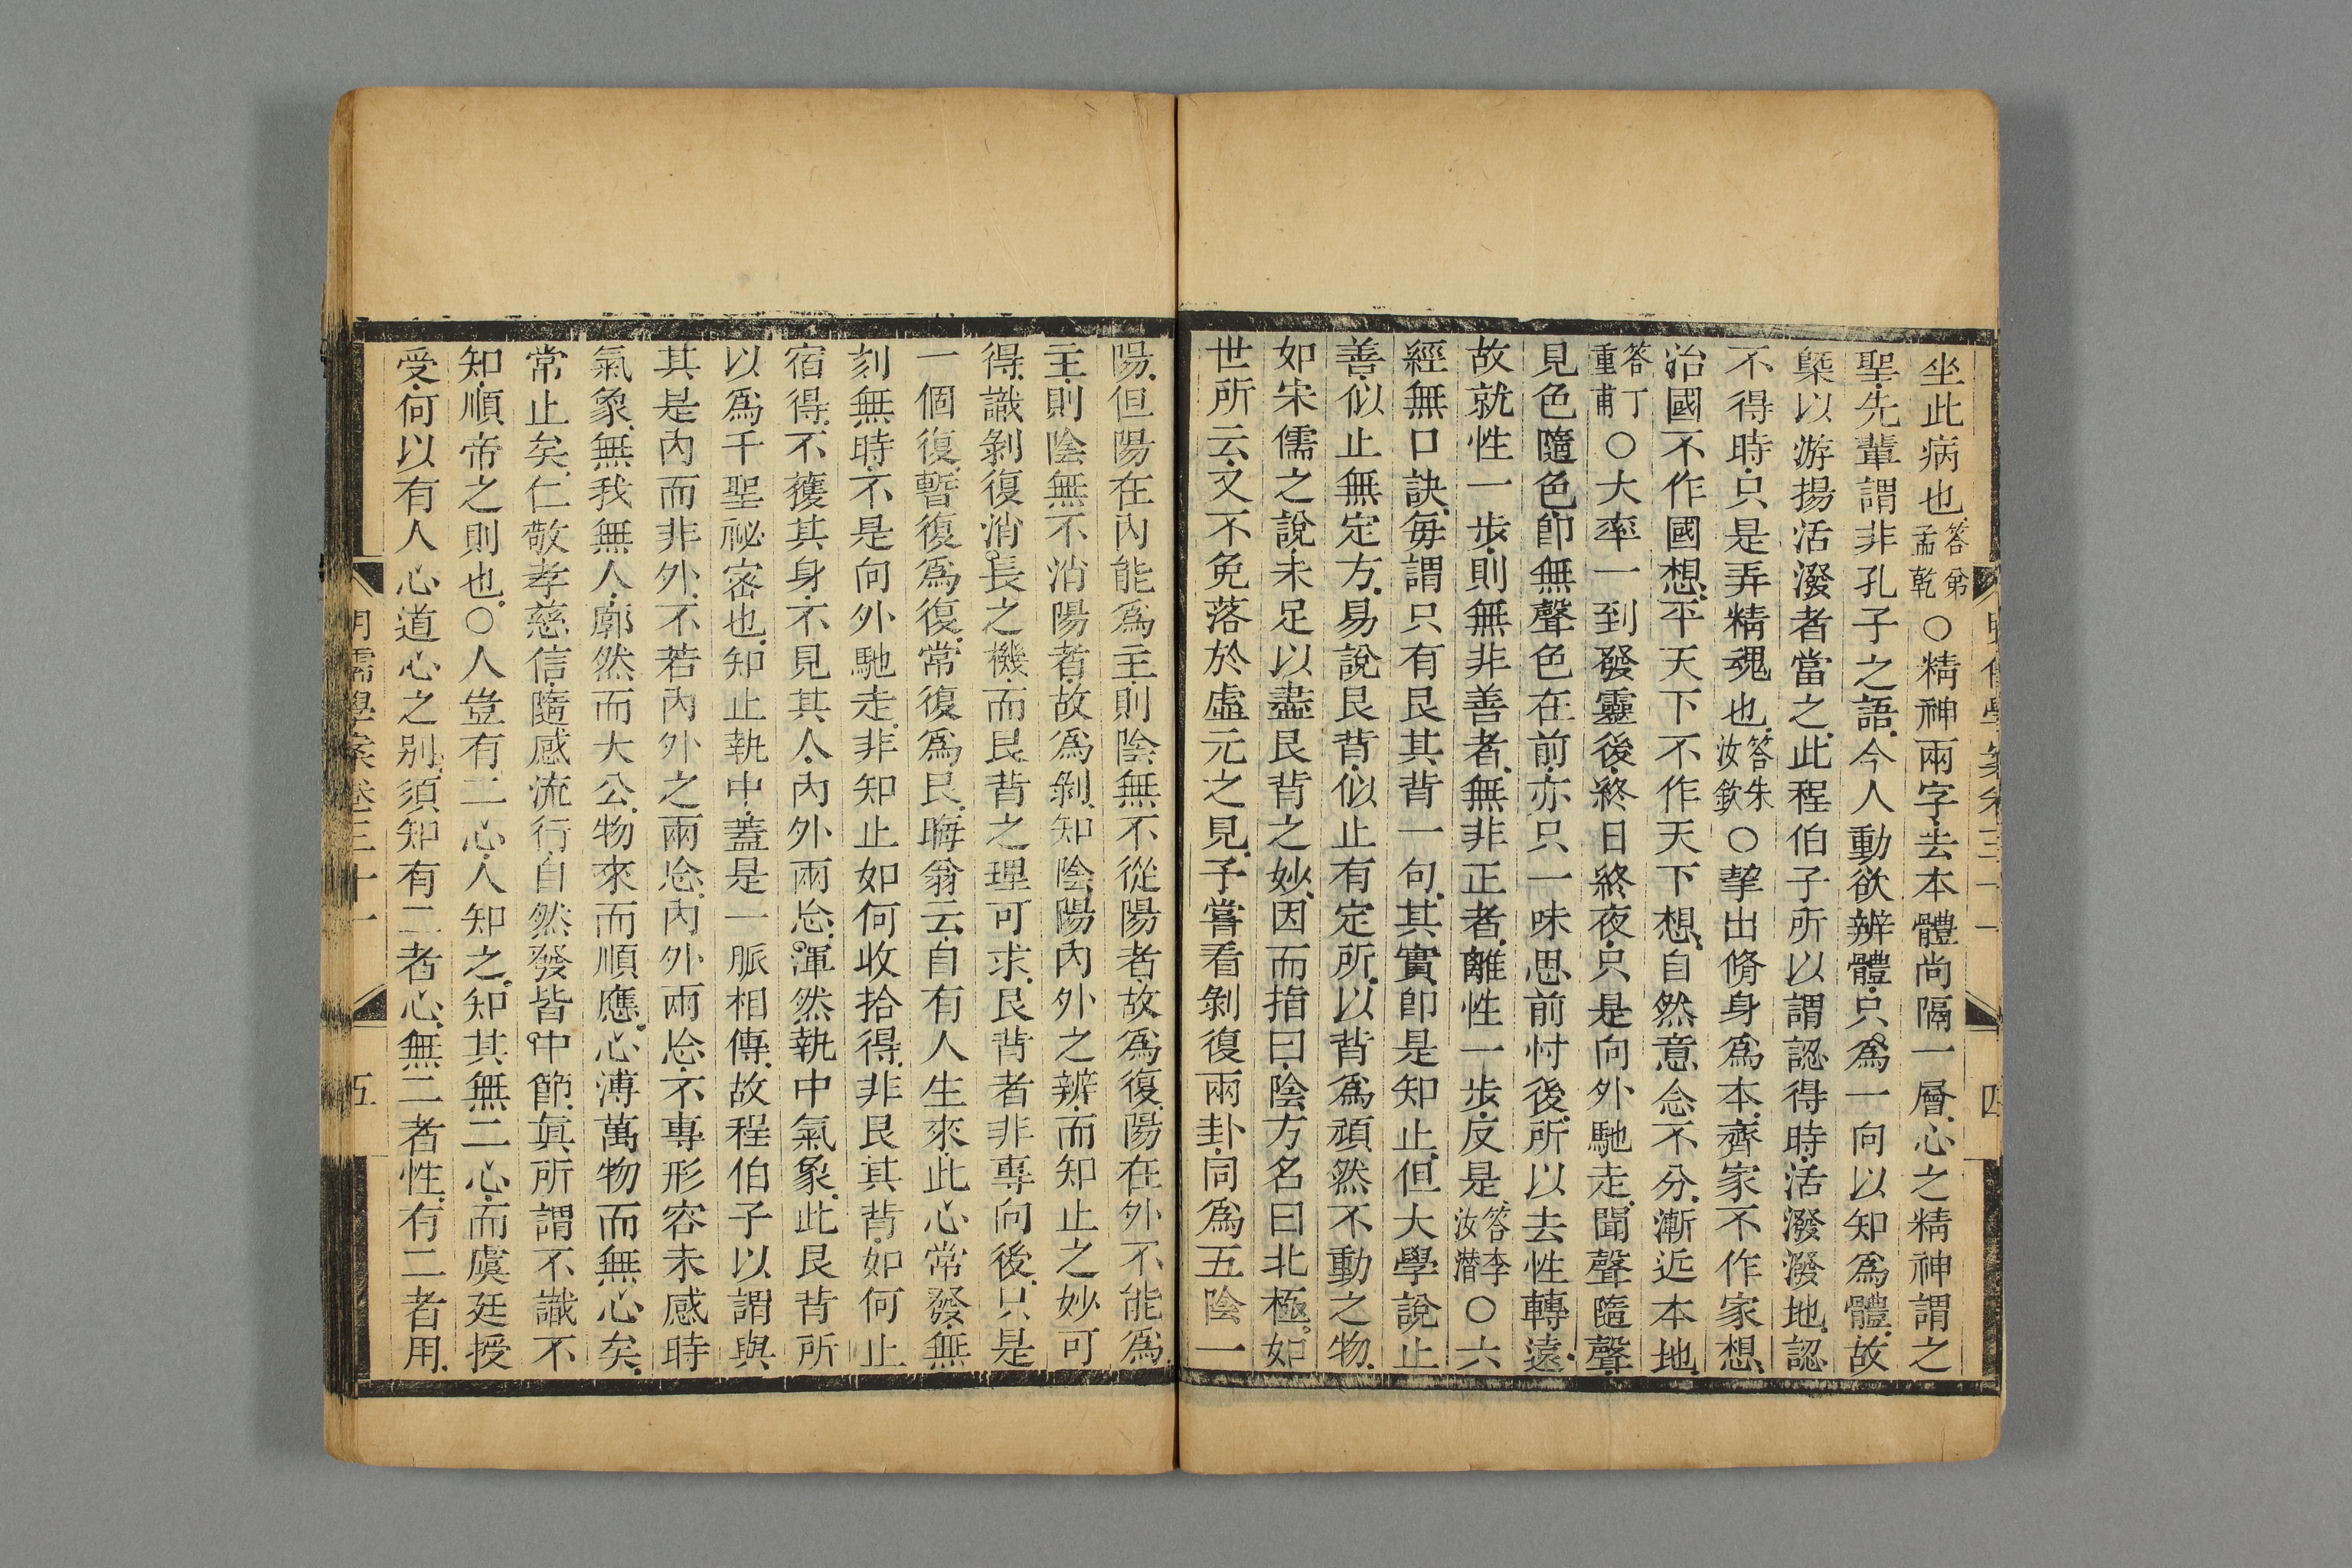 坐此病也答弟孟乾○精神兩字去本體尚隔一層心之精神謂之
聖先輩謂非孔子之語今人動欲辨體只為一向以知為體故
槩以游揚活潑者當之此程伯子所以謂認得時活潑潑地認
不得時只是弄精魂也答朱汝欽○挈出脩身為本齊家不作家想
治國不作國想平天下不作天下想自然意念不分漸近本地
答丁重甫○大率一到發靈後終日終夜只是向外馳走聞聲隨聲
見色隨色卽無聲色在前亦只一味思前忖後所以去性轉遠
故就性一步則無非善者無非正者離性一步反是答李汝潛○六
經無口訣每謂只有艮其背一句其實卽是知止但大學說止
善似止無定方易說艮背似止有定所以背為頑然不動之物
如宋儒之說未足以盡艮背之妙因而指曰陰方名曰北極如
世所云又不免落於虛元之見子嘗看剝復兩卦同為五陰一
陽但陽在內能為主則陰無不從陽者故為復陽在外不能為
主則陰無不消陽者故為剝知陰陽內外之辨而知止之妙可
得識剝復消長之機而艮背之理可求艮背者非專向後只是
一個復暫復為復常復為艮晦翁云自有人生來此心常發無
刻無時不是向外馳走非知止如何收拾得非艮其背如何止
宿得不獲其身不見其人內外兩忘渾然執中氣象此艮背所
以為千聖祕密也知止執中蓋是一脈相傳故程伯子以謂與
其是內而非外不若內外之兩忘內外兩忘不專形容未感時
氣象無我無人廓然而大公物來而順應心溥萬物而無心矣
常止矣仁敬孝慈信隨感流行自然發皆中節眞所謂不識不
知順帝之則也○人豈有二心人知之知其無二心而虞廷授
受何以有人心道心之別須知有二者心無二者性有二者用
明儒學案卷三十一 五